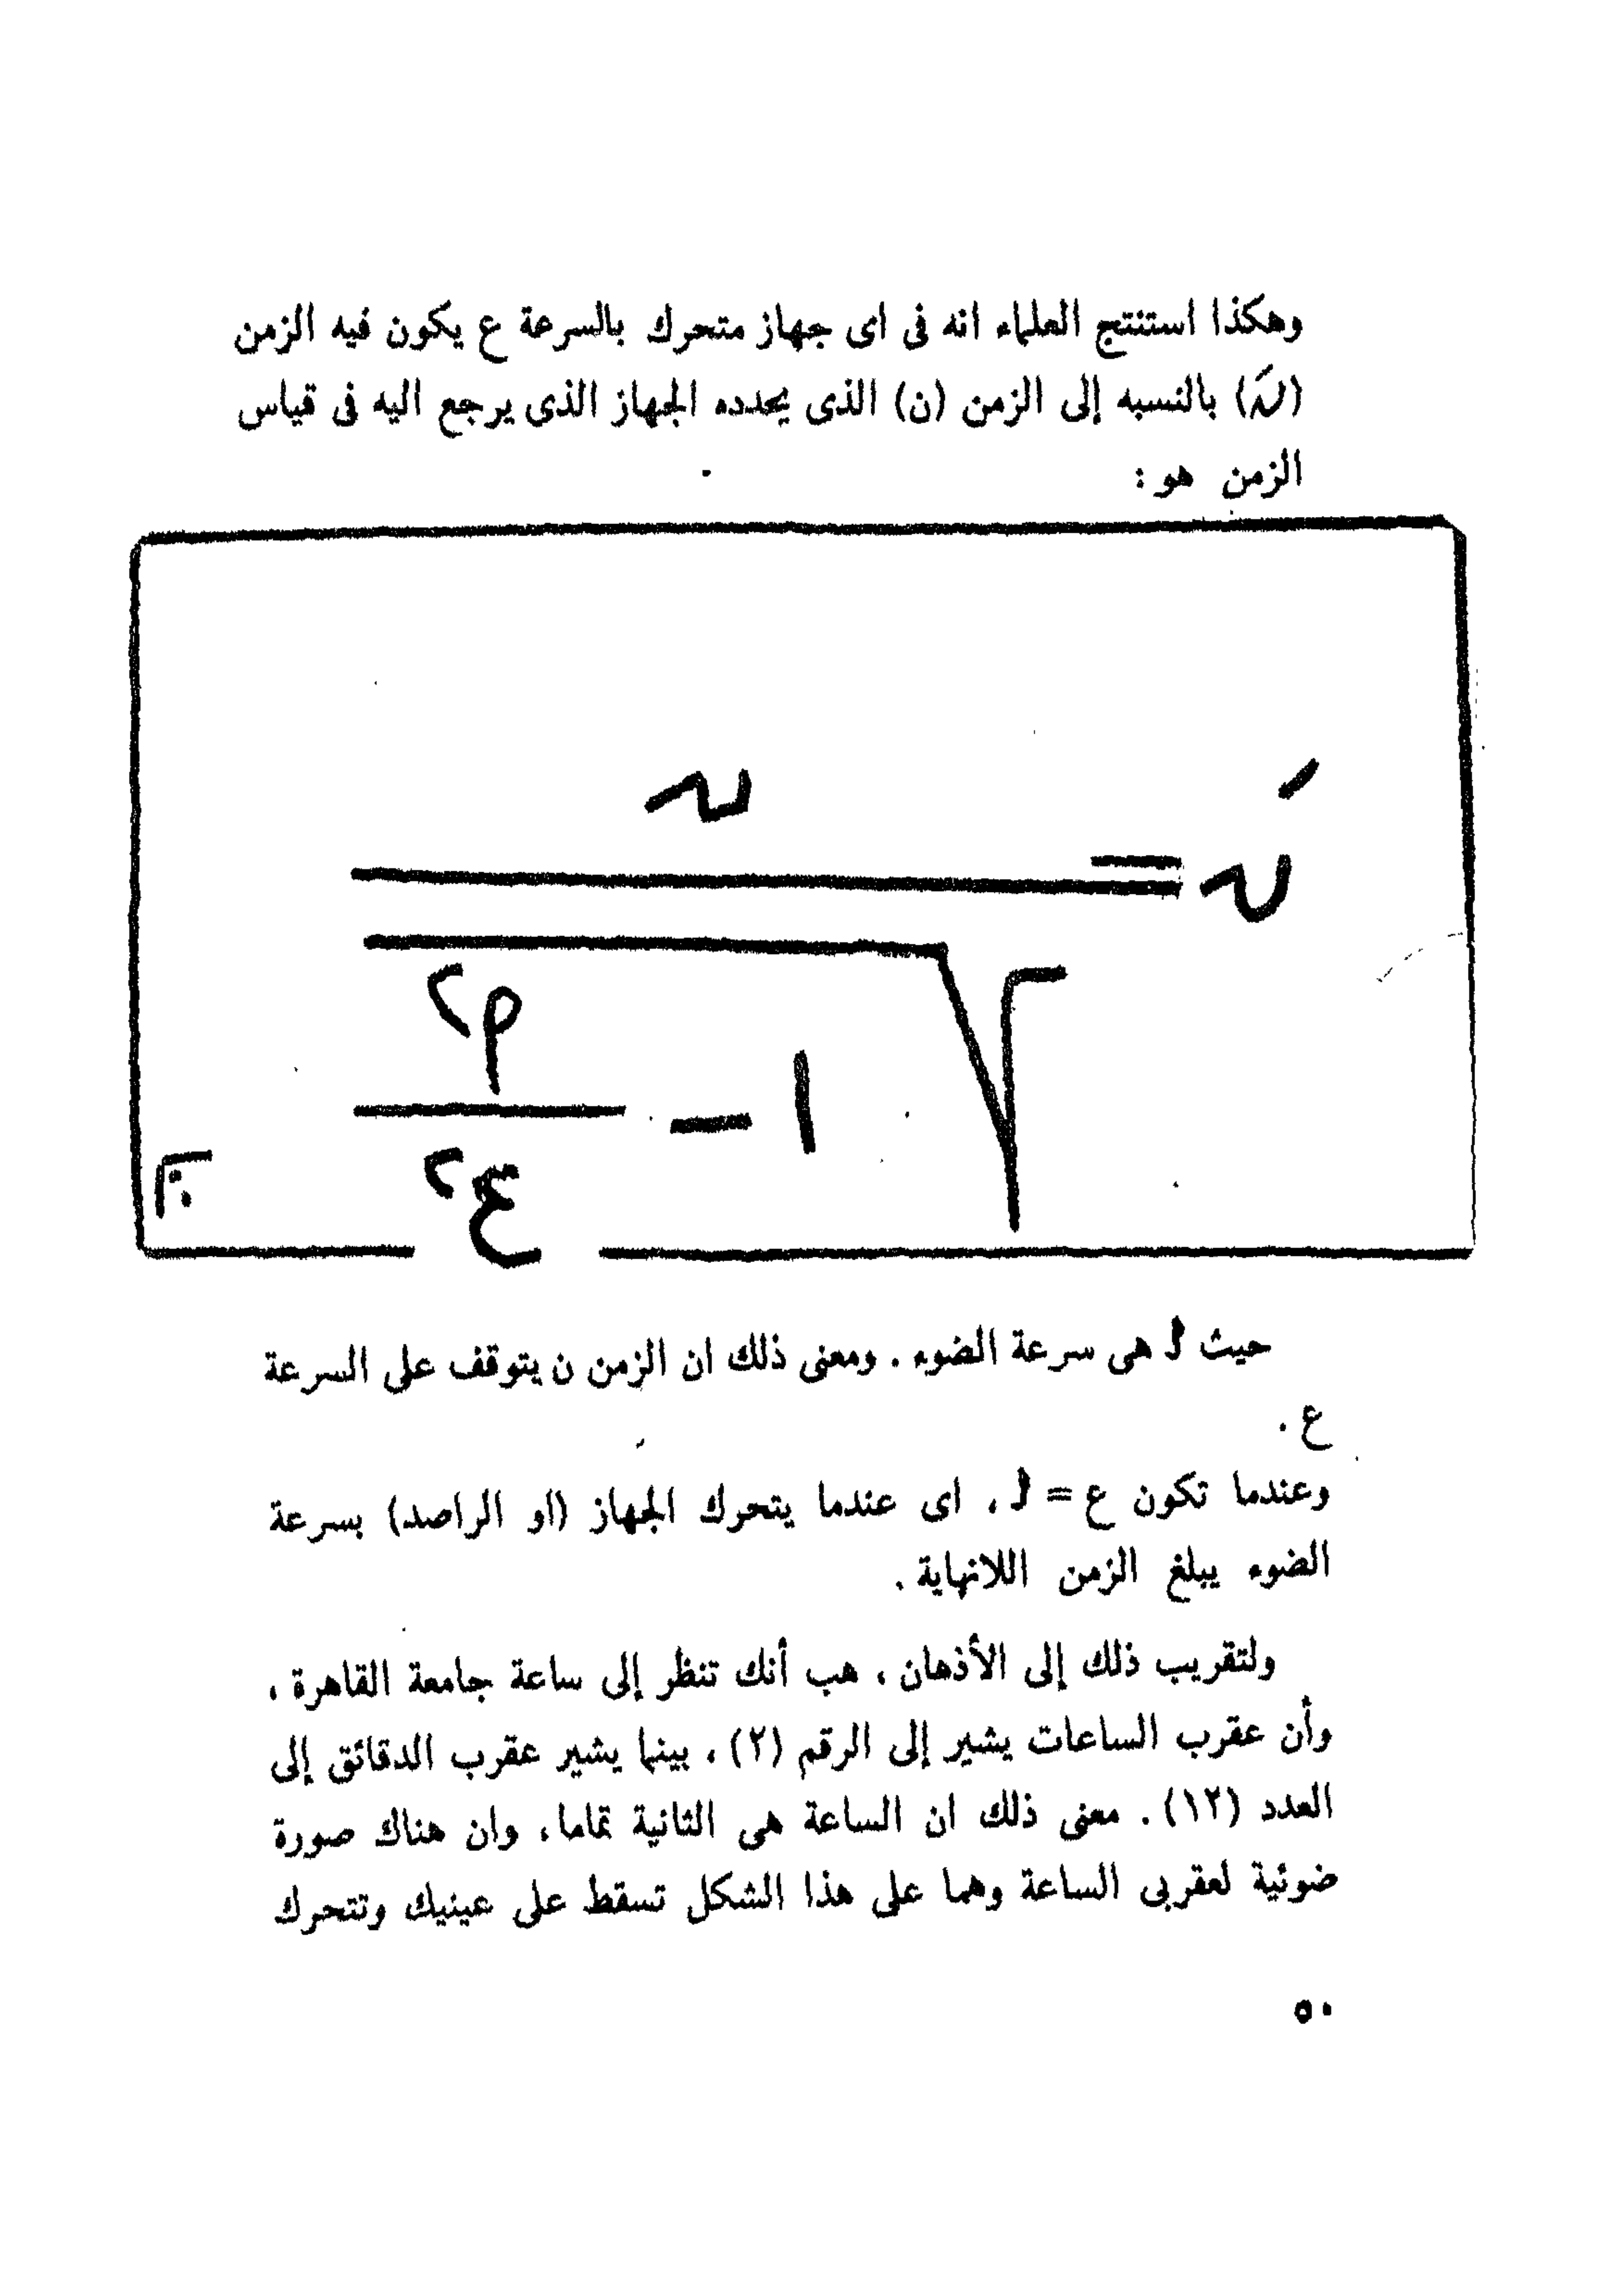 وهكذا استنتج العلماء انه فى اى جهاز متحرك بالسرعة ع يكون فيه الزمن
(نَ) بالنسبه إلى الزمن (ن) الذى يحدده الجهاز الذى يرجع اليه فى قياس
الزمن هو :
ن
نَ =
١ -
م٢
ع٢
حيث هى سرعة الضوء . ومعنى ذلك ان الزمن ن يتوقف على السرعة
ع .
وعندما تكون ع = ، اى عندما يتحرك الجهاز (او الراصد) بسرعة
الضوء يبلغ الزمن اللانهاية .
ولتقريب ذلك إلى الأذهان ، هب أنك تنظر إلى ساعة جامعة القاهرة ،
وأن عقرب الساعات يشير إلى الرقم (٢) ، بينما يشير عقرب الدقائق إلى
العدد (١٢) . معنى ذلك ان الساعة هى الثانية تماما ، وان هناك صورة
ضوئية لعقربى الساعة وهما على هذا الشكل تسقط على عينيك وتتحرك
٥٠